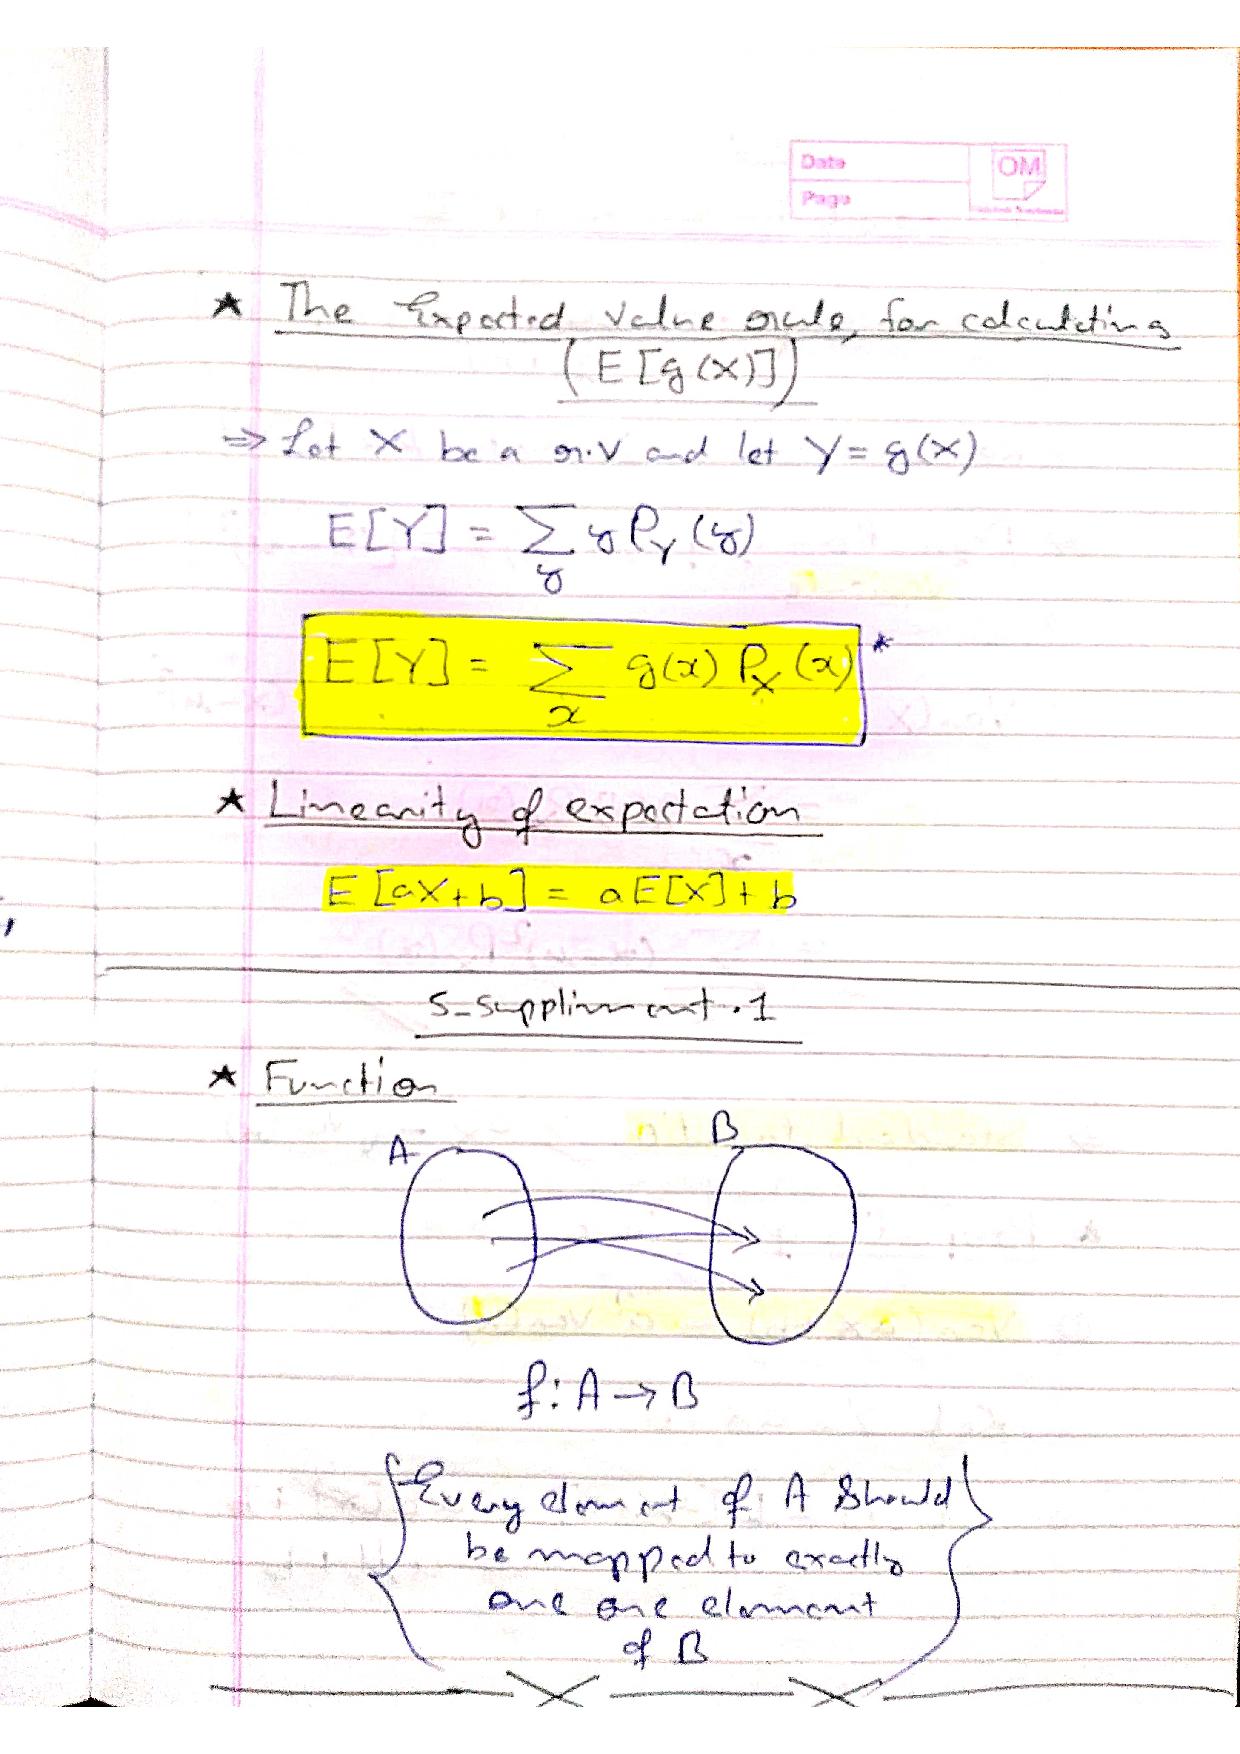 Date
OM
Page
★ The Expected value rule, for calculating
(E[g(X)])
⇒ Let X be a r.v and let Y = g(X)
E[Y] = ∑ y P_Y (y)
y
E[Y] = ∑ g(x) P_X (x) *
x
★ Linearity of expectation
E[aX+b] = aE[X] + b
S-suppliment.1
★ Function
A B
f: A → B
{Every element of A should
be mapped to exactly
one one element
of B}